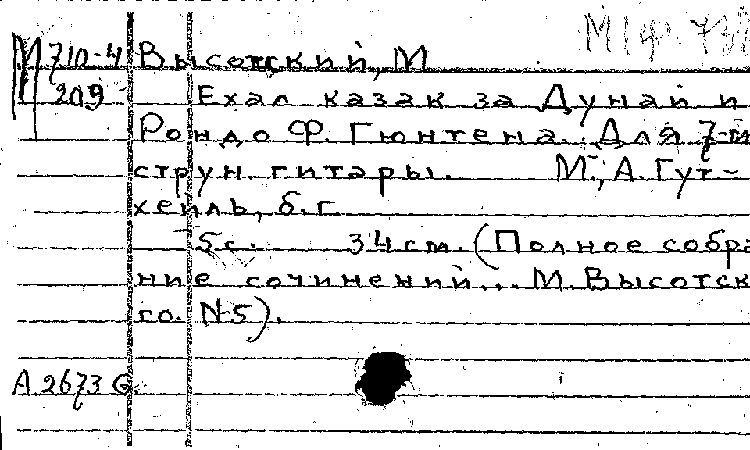 М 710-4 Высотский, М
209 Ехал казак за Дунай и
Рондо Ф. Гюнтена. Для 7-и
струн. гитары. М., А. Гут-
хейль, б.г.
5с. 34см. (Полное собра
ние сочинений... М. Высотск
го. №5).
А.2673 G.